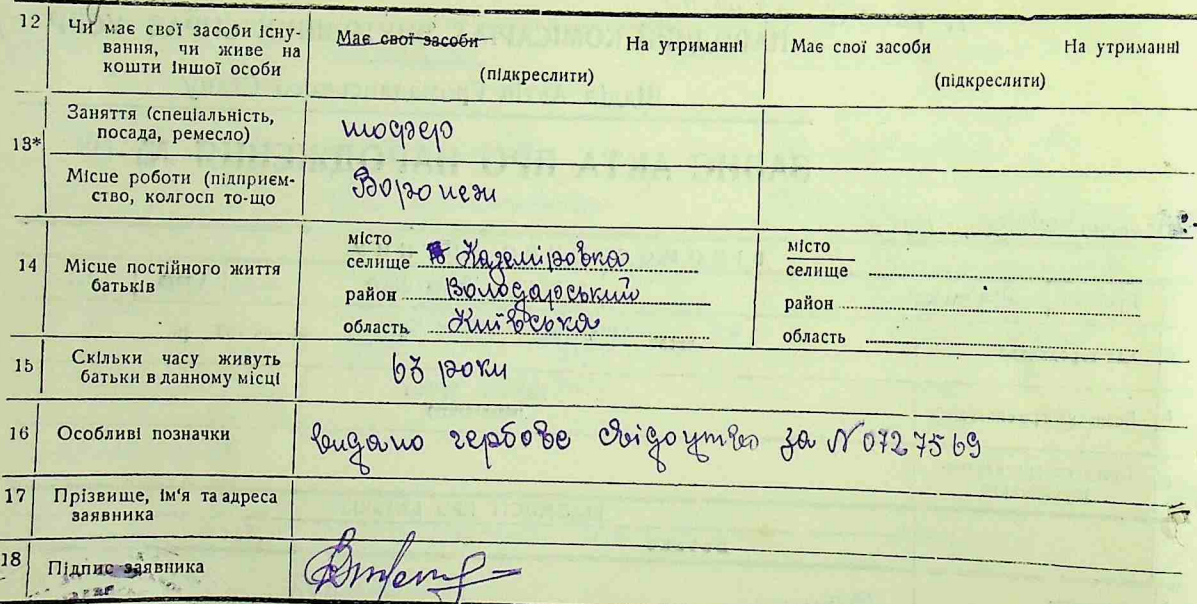 12 Чи має свої засоби існу-
вання, чи живе на
кошти іншої особи
Має свої засоби На утриманні Має свої засоби На утриманні
(підкреслити) (підкреслити)
13* Заняття (спеціальність,
посада, ремесло) шофер
Місце роботи (підприєм-
ство, колгосп то-що Воронеж
14 Місце постійного життя
батьків
місто
селище Каземіровка
район Володарський
область Київська
місто
селище
район
область
15 Скільки часу живуть
батьки в данному місці 63 роки
16 Особливі позначки видано гербове свідоцтво за N 0727569
17 Прізвище, ім'я та адреса
заявника
18 Підпис заявника